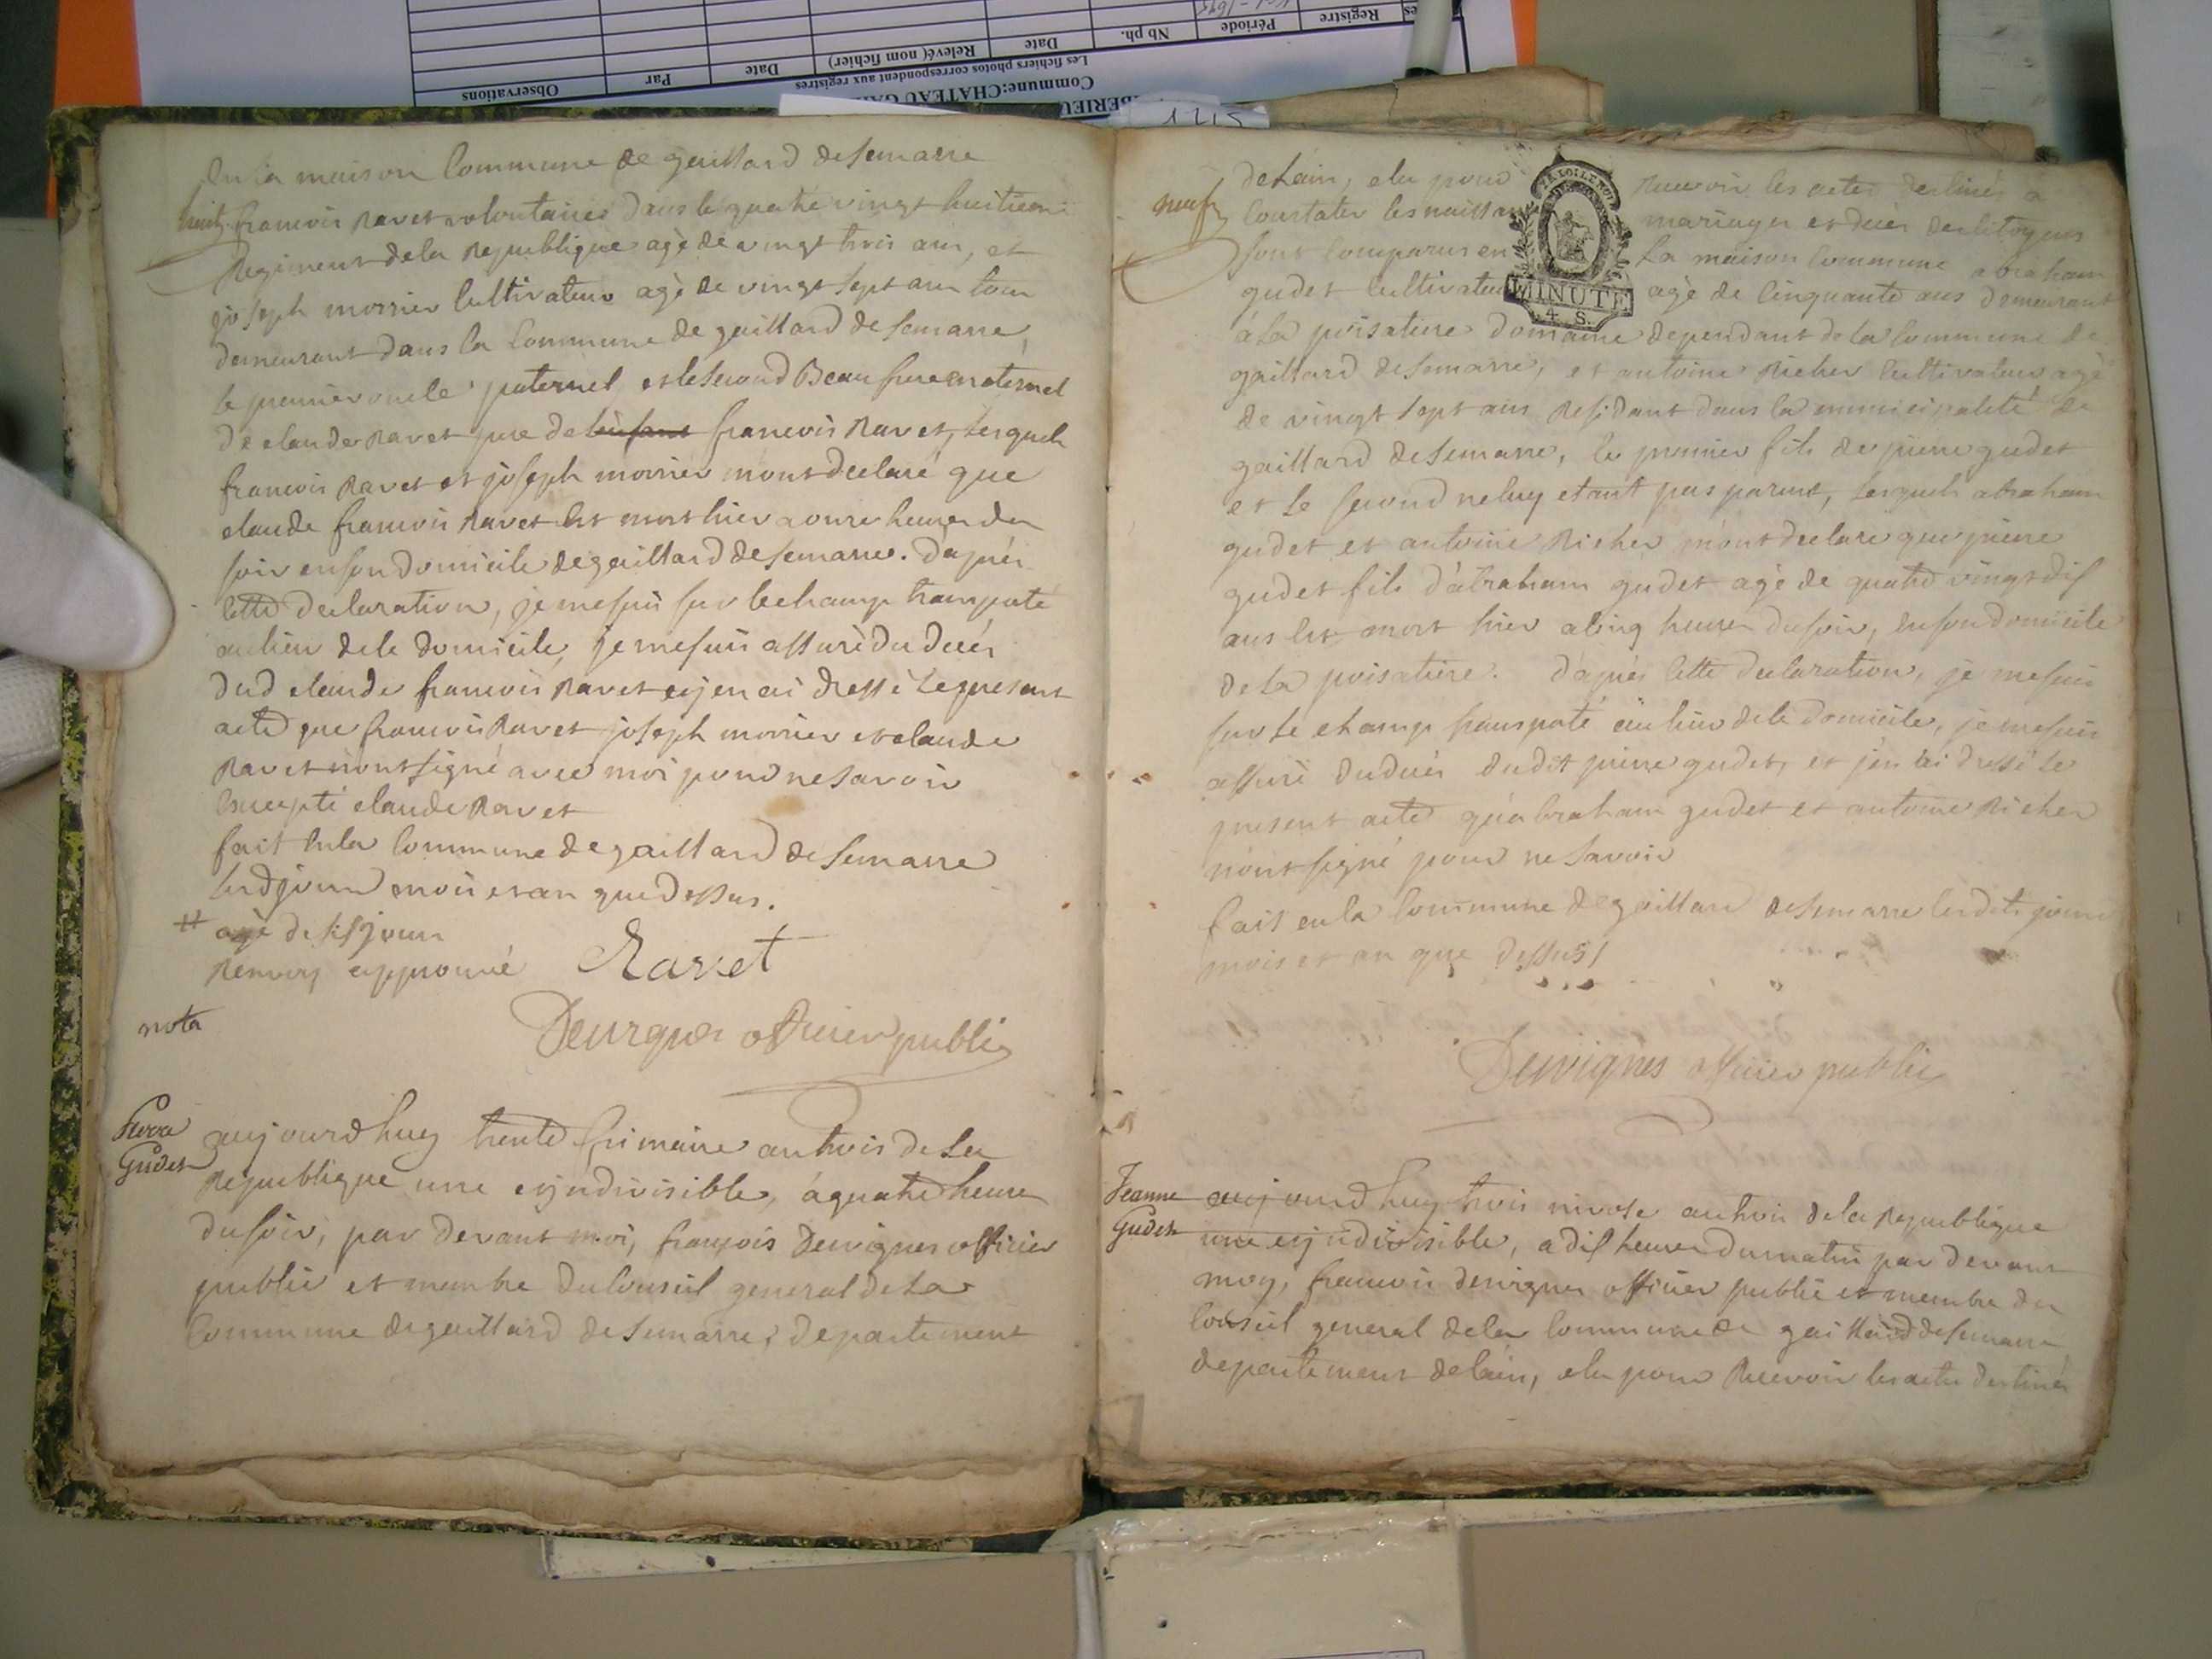 en la maison Commune de gaillard desemarre
huit
francois Ravet volontaire dans le quatre vingt huitieme
Regiment dela Republique agé de vingt trois ans, et
joseph morrier Cultivateur agé de vingt sept ans tous
demeurant dans la Commune de gaillard desemarre,
le premier oncle paternel et le second Beau frere maternel
de claude Ravet pere de francois Ravet, lesquels
francois Ravet et joseph morrier m'ont declaré que
claude francois Ravet Est mort hier a onze heures du
soir en son domicile de gaillard desemarre. d'aprés
Cette declaration, je me suis sur le champ transporté
au lieu de ce domicile, je me suis assuré du decés
dud claude francois Ravet et j'en ai dressé le present
acte que francois Ravet joseph morrier et claude
Ravet n'ont signé avec moi pour ne savoir
Excepté claude Ravet
fait En la Commune de gaillard desemarre
lesd jour mois et an que dessus.
# agé de six jours
Renvoy approuvé Ravet
nota
Desvignes officier public
Gudet
aujourdhuy trente frimaire an trois de la
Republique une et jndivisible, á quatre heures
du soir, par devant moi, françois Desvignes officier
public et membre du Conseil general de la
Commune de gaillard desemarre, departement
neuf
de Lain, elu pour Recevoir les actes destinés a
Constater les naissances mariages et deces des Citoyens
sont Comparus en la maison Commune abraham
gudet Cultivateur agé de Cinquante ans demeurant
LA LOI LE ROI
MINUTE
4 S.
á la poisatiere domaine dependant de la Commune de
gaillard desemarre, et antoine Richer Cultivateur agé
de vingt sept ans Residant dans la municipalité de
gaillard desemarre, le premier fils de pierre gudet
et le second ne luy etant pas parent, lesquels abraham
gudet et antoine Richer m'ont declaré que pierre
gudet fils d'abraham gudet agé de quatre vingt dix
ans Est mort hier a Cinq heures du soir, en son domicile
de la poisatiere. d'aprés Cette declaration, je me suis
sur le champ transporté au lieu de ce domicile, je me suis
assuré du decés dudit pierre gudet, et j'en ai dressé le
present acte qu'abraham gudet et antoine Richer
n'ont signé pour ne savoir
fait en la Commune de gaillard desemarre lesdits jour
mois et an que dessus/
Desvignes officier public
Jeanne
Gudet
aujourdhuy trois nivose an trois de la Republique
une et jndivisible, a dix heures du matin par devant
moy, francois desvignes officier public et membre du
Conseil general de la Commune de gaillard desemarre
departement de lain, elu pour Recevoir les actes destinés
Observations
Par
Date
Relevé( nom fichier)
Date
Nb ph.
Période
Registre
Les fichiers photos correspondent aux registres
Commune:CHATEAU GA